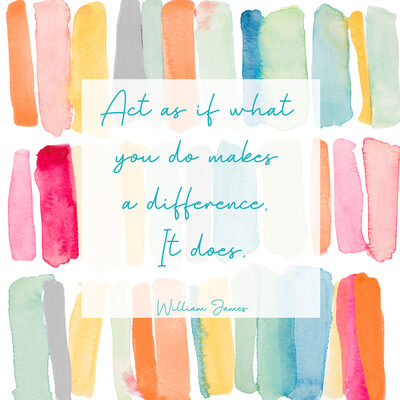 Act as if what
you do makes
a difference.
It does.
William James